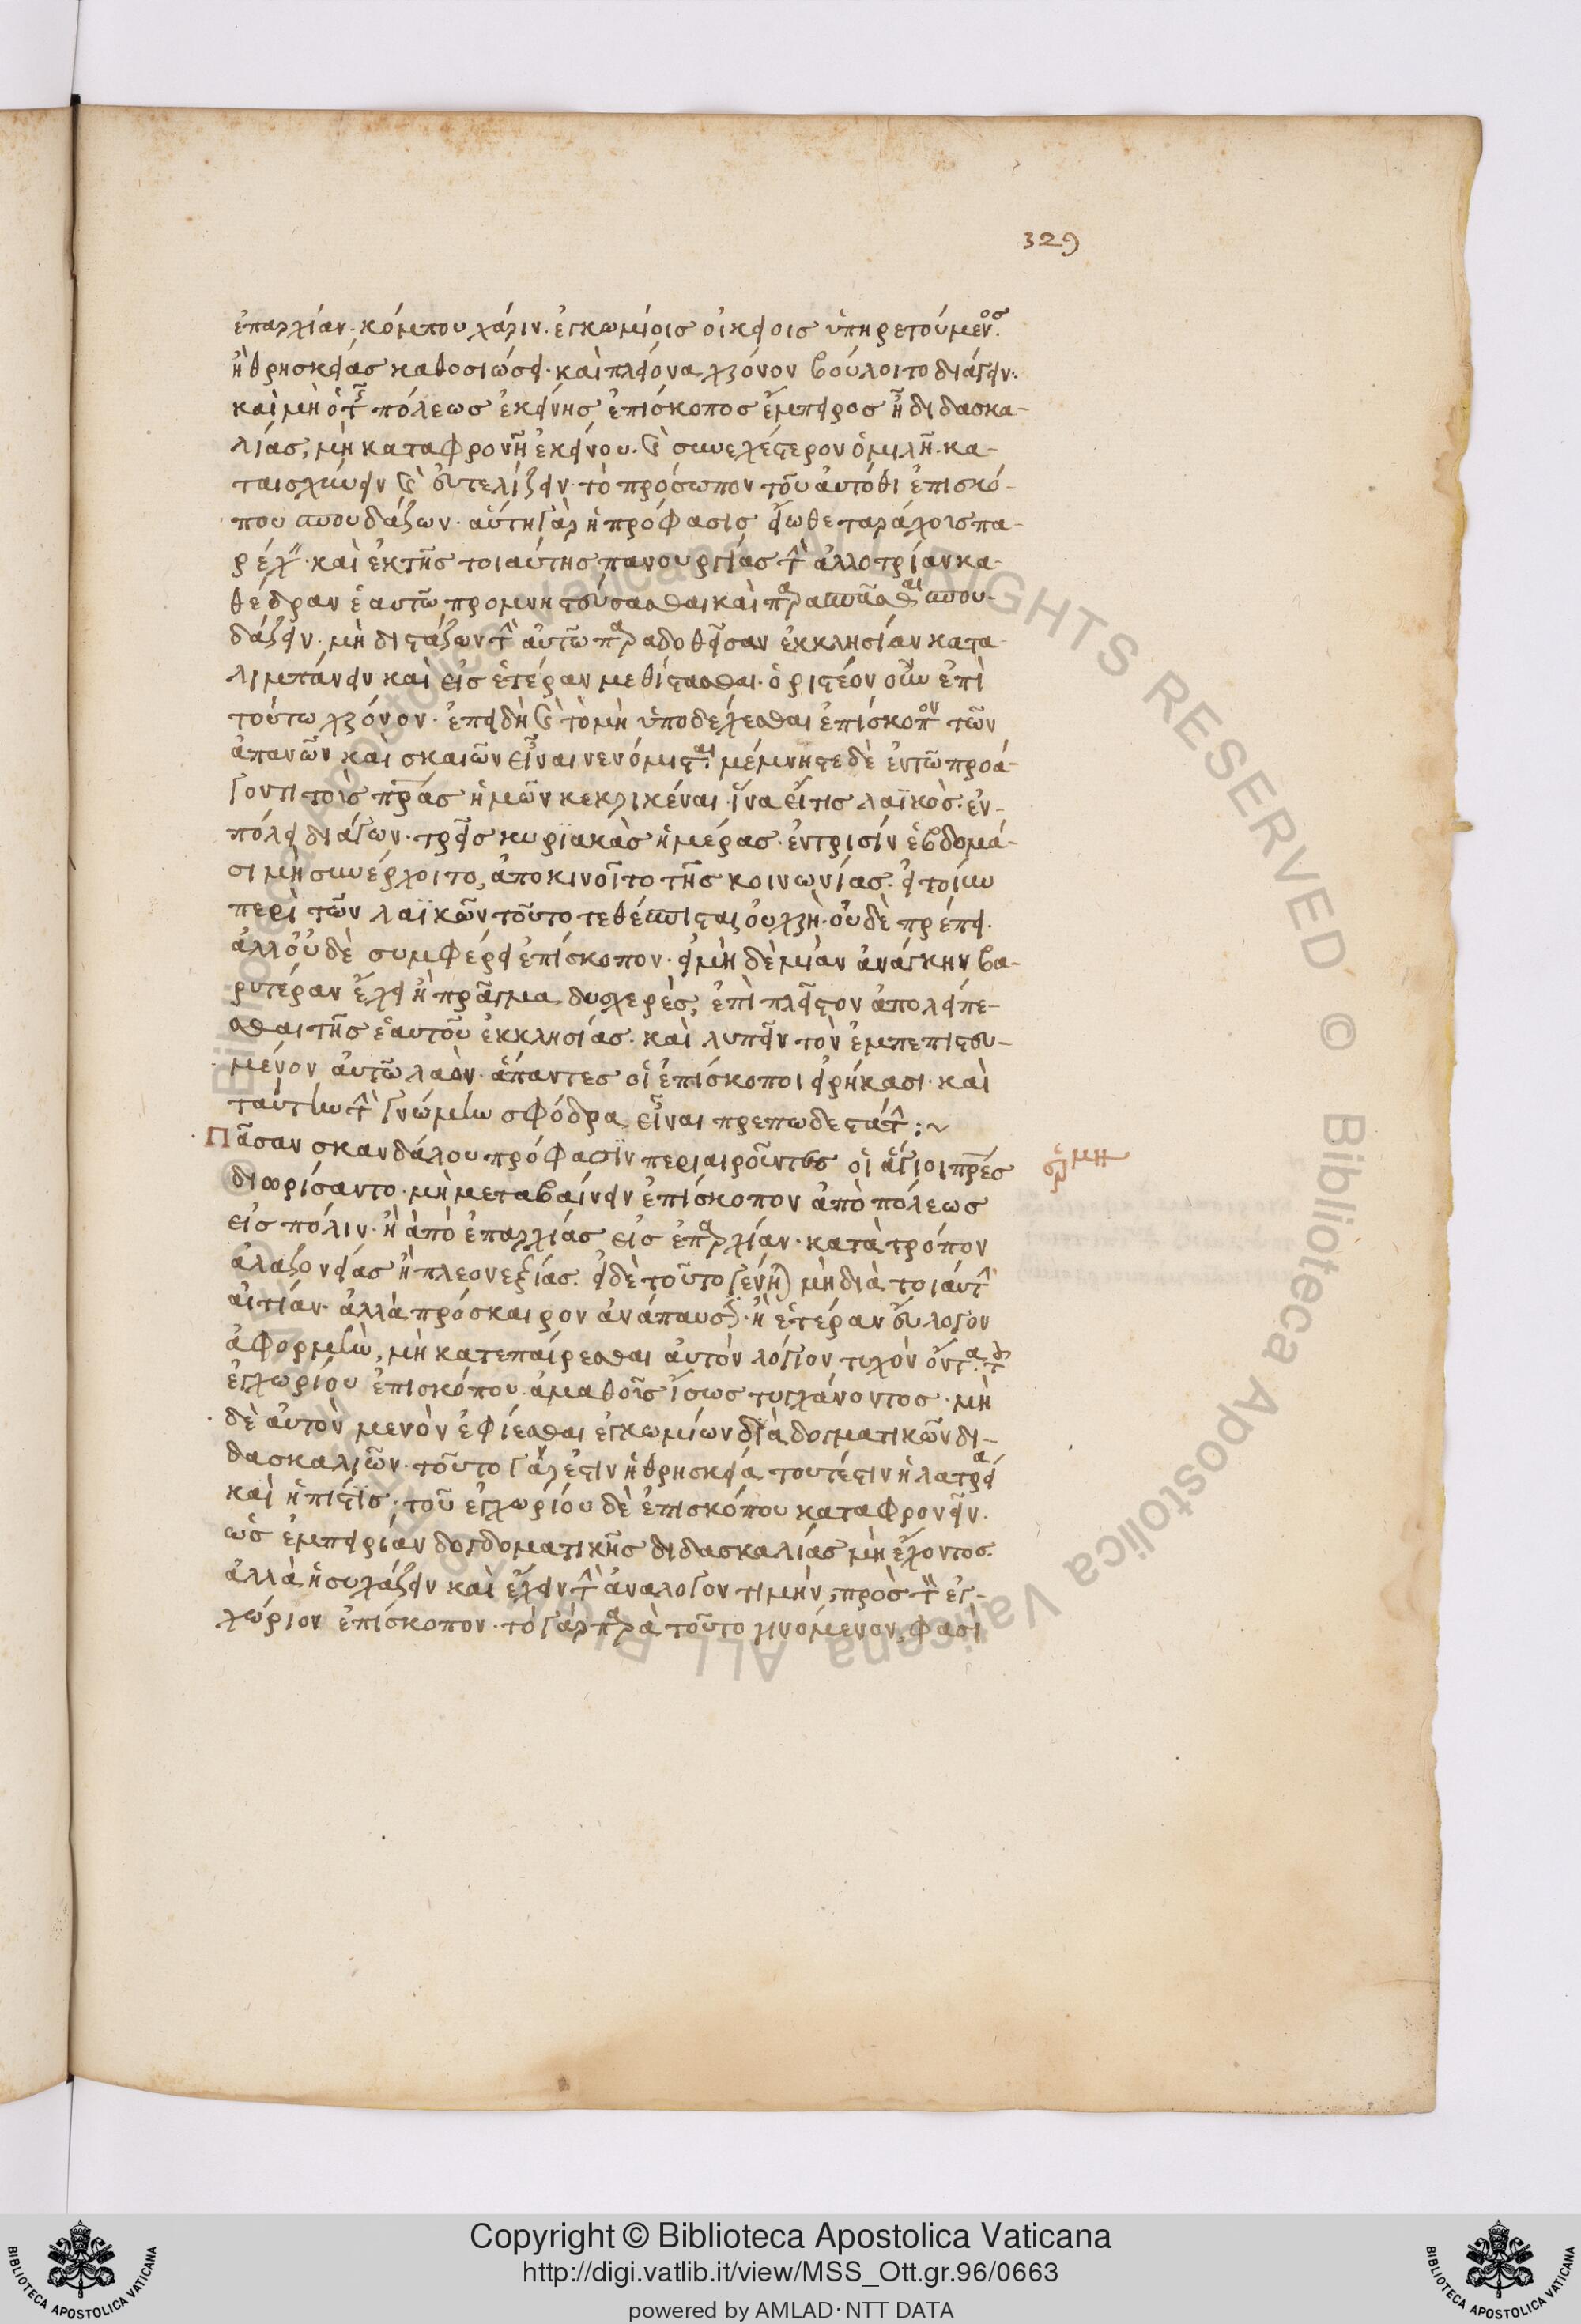 329
ἐπαρχίαν· κόμπου χάριν· ἐγκωμίοις οἰκείοις ὑπηρετούμενος.
ἢ θρησκείας καθοσιώσει· καὶ πλείονα χρόνον βούλοιτο διάγειν·
καὶ μὴ ὁ τῆς πόλεως ἐκείνης ἐπίσκοπος ἔμπειρος ᾖ διδασκα-
λίας, μὴ καταφρονῇ ἐκείνου· καὶ συνεχέστερον ὁμιλῇ· κα-
ταισχύνειν καὶ εὐτελίζειν· τὸ πρόσωπον τοῦ αὐτόθι ἐπισκό-
που σπουδάζων· αὕτη γὰρ ἡ πρόφασις εἴωθε ταράχοις πα-
ρέχειν· καὶ ἐκ τῆς τοιαύτης πανουργίας τὴν ἀλλοτρίαν κα-
θέδραν ἑαυτῷ προμνηστεύσασθαι καὶ παρασπᾶσθαι σπου-
δάζειν· μὴ διστάζων τὴν αὐτῷ παραδοθεῖσαν ἐκκλησίαν κατα-
λιμπάνειν καὶ εἰς ἑτέραν μεθίστασθαι· ὁριστέον οὖν ἐπὶ
τούτω χρόνον· ἐπειδὴ καὶ τὸ μὴ ὑποδέχεσθαι ἐπίσκοπον τῶν
ἀπανῶν καὶ σκαιῶν εἶναι νενόμισται· μέμνησθε δὲ ἐν τῷ προά-
γοντι τοὺς πρας ἡμῶν κεκρικέναι· ἵνα εἴτις λαϊκὸς· ἐν
πόλει διάγων· τρεῖς κυριακὰς ἡμέρας· ἐν τρισὶν ἑβδομά-
σι μὴ συνέρχοιτο, ἀποκινοῖτο τῆς κοινωνίας· εἰ τοίνυν
περὶ τῶν λαϊκῶν τοῦτο τεθέσπισται οὐ χρὴ· οὐδὲ πρέπει·
ἀλλ' οὐδὲ συμφέρει ἐπίσκοπον· εἰ μὴ δὲ μίαν ἀνάγκην βα-
ρυτέραν ἔχει ἢ πρᾶγμα δυσχερὲς, ἐπὶ πλεῖστον ἀπολείπε-
σθαι τῆς ἑαυτοῦ ἐκκλησίας· καὶ λυπεῖν τὸν ἐμπεπιστευ-
μένον αὐτῷ λαὸν· ἅπαντες οἱ ἐπίσκοποι εἰρήκασι· καὶ
ταύτην τὴν γνώμην σφόδρα εἶναι πρεπωδεστάτην :~
Πᾶσαν σκανδάλου πρόφασιν περιαιροῦντες οἱ ἅγιοι πρες
διωρίσαντο· μὴ μεταβαίνειν ἐπίσκοπον ἀπὸ πόλεως
εἰς πόλιν· ἢ ἀπὸ ἐπαρχίας εἰς ἐπαρχίαν· κατὰ τρόπον
ἀλαζονείας ἢ πλεονεξίας· εἰ δὲ τοῦτο γένηται μὴ διὰ τοιαύτην
αἰτίαν· ἀλλὰ πρόσκαιρον ἀνάπαυσιν· ἢ ἑτέραν εὔλογον
ἀφορμὴν, μὴ κατεπαίρεσθαι αὐτὸν λόγιον τυχὸν ὄντα· τοῦ
ἐγχωρίου ἐπισκόπου ἀμαθοῦς ἴσως τυγχάνοντος· μὴ
δὲ αὐτὸν μενὸν ἐφίεσθαι ἐγκωμίων διὰ δογματικῶν δι-
δασκαλιῶν· τοῦτο γάρ ἐστιν ἡ θρησκεία τουτέστιν ἡ λατρεία
καὶ ἡ πίστις· τοῦ ἐγχωρίου δὲ ἐπισκόπου καταφρονεῖν·
ὡς ἐμπειρίαν δογδοματικῆς διδασκαλίας μὴ ἔχοντος·
ἀλλὰ ἡσυχάζειν καὶ ἔχειν τὴν ἀνάλογον τιμὴν, πρὸς τὸν ἐγ-
χώριον ἐπίσκοπον· τὸ γὰρ παρὰ τοῦτο γινόμενον, φασὶ
Copyright © Biblioteca Apostolica Vaticana
http://digi.vatlib.it/view/MSS_Ott.gr.96/0663
powered by AMLAD·NTT DATA
BIBLIOTECA APOSTOLICA VATICANA
BIBLIOTECA APOSTOLICA VATICANA